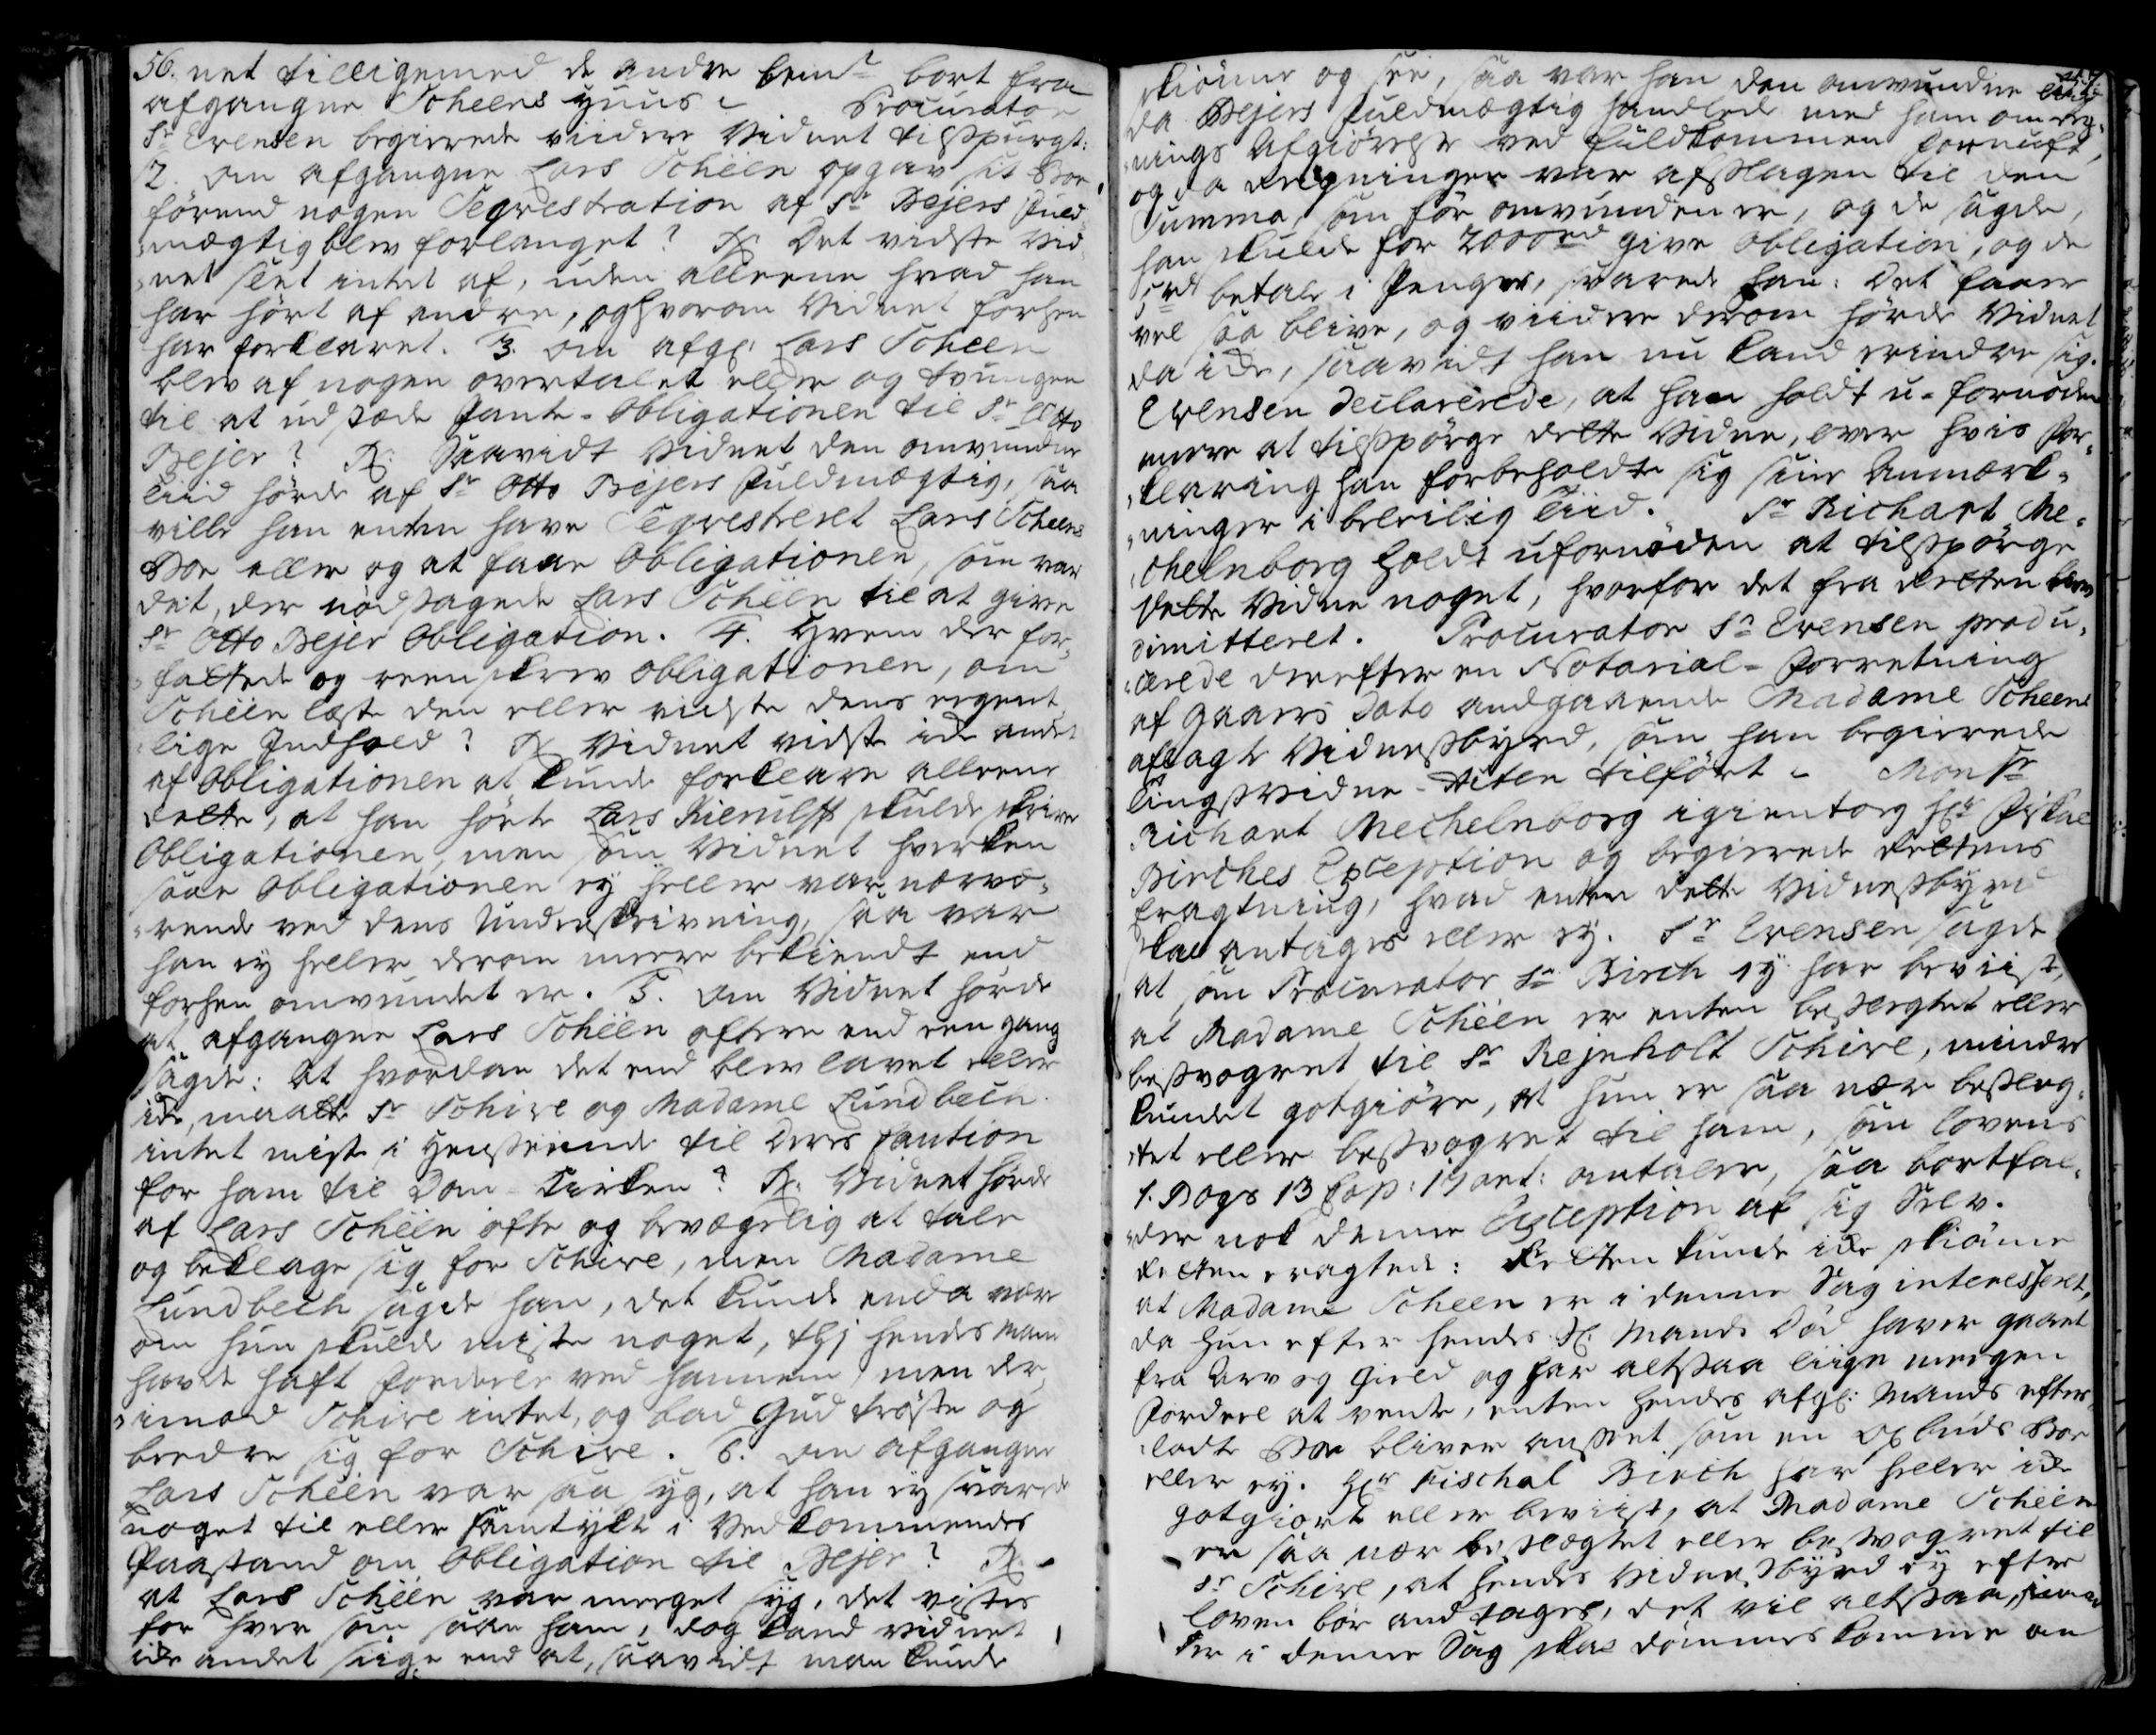 56. net tilligemed de andre bem:te bort fra
afgangne Scheens Huus. Procurator
Sr. Evensen begierede viidere Vidnet tilspurgt:
2. Om afgangne Lars Scheen opgav sit Boe,
førend nogen Seqvestration af Sr. Bejers Fuld¬
mægtig blev forlanget? R: Det vidste Vid¬
net slet intet af, uden alleene hvad han
har hørt af andre, og hvorom Vidnet forhen
har forklaret. 3. om afg: Lars Scheen
blev af nogen overtalet eller og tvungen
til at udstæde Pante-Obligationen til Sr. Otto
Bejer? R: Saavidt Vidnet den omvundne
Tiid hørde af Sr. Otto Bejers Fuldmægtig, saa
ville han enten have Seqvestreret Lars Scheens
Boe eller og at faae Obligationen, som var
det, der nødsagede Lars Scheen til at give
Sr. Otto Bejer Obligation. 4. Hvem der for¬
fattede og reenskrev Obligationen, om
Scheen læste den eller vidste dens eegent¬
lige Indhold? R: Vidnet vidste icke andet
af Obligationen at kunde forklare alleene
dette, at han hørte Lars Kierulff skulde skrive
Obligationen, men som Vidnet hverken
saae Obligationen ey heller var nærvæ¬
rende ved dens Underskrivning, saa var
han ey heller derom meere bekiendt end
forhen omvundet er. 5. Om Vidnet hørde
at afgangne Lars Scheen oftere end een gang
sagde: At hvordan det end blev lavet eller
icke, maatte Sr. Schive og Madame Lundbech
intet miste i Henseende til Deres Caution
for ham til Dom-Kirken? R: Vidnet hørde
af Lars Scheen ofte og bevægelig at tale
og beklage sig for Schive, men Madame
Lundbech sagde han, det kunde enda være
om hun skulde miste noget, thj hendes Mand
havde haft Fordeele ved hannem, men der¬
imod Schive intet, og bad Gud trøste og
bedre sig for Schive. 6. Om afgangne
Lars Scheen var saa syg, at han ey svarede
noget til eller samtykte i Vedkommendes
Paastand om Obligation til Bejer? R:
at Lars Scheen var meget syg, det vistes
for hver som saae ham, dog kand vidnet
icke andet siige end at, saavidt man kunde
skiønne og see, saa var han den omvundne Tiid
da Bejers Fuldmægtig handlede med ham om Reg¬
nings Afgiørelse ved fuldkommen Fornuft,
og da Regningen var afslagen til den
Summa, som før omvunden er, og de sagde,
han skulde for 2000 rd give Obligation, og de
betale i Penger, svarede han: Det faaer
vel saa blive, og viidere derom hørde Vidnet
da icke, saavidt han nu kand erindre sig.
Evensen declarerede, at han holdt u-fornøden
meere at tilspørge dette Vidne, over hvis For¬
klaring han forbeholdte sig siine Anmærk¬
ninger i beleilig Tiid. Sr. Richart Me¬
chelnborg holdt ufornøden at tilspørge
dette Vidne noget, hvorfor det fra Retten blev
dimitteret. Procurator Sr. Evensen produ¬
cerede derefter en Notarial-Forretning
af Gaars Dato andgaaende Madame Scheens
aflagte Vidnesbyrd, som han begierede
Tingsvidne-Acten tilført. Monsr.
Richart Mechelnborg igientog Hr. Fiskal
Birches Exception og begierede Rettens
Eragtning, hvad enten dette Vidnesbyrd
skal antages eller ey. Sr. Evensen sagde
at som Procurator Sr. Birch ey har beviist,
at Madame Scheen er enten beslegtet eller
besvogret til Sr. Rejnholt Schive, mindre
kundet gotgiøre, at hun er saa nær besleg¬
tet eller besvogret til ham, som Lovens
1. Bogs 13 Cap: 17 art: antaler, saa bortfal¬
der nok denne Exception af sig Selv.
Retten eragtede: Retten kunde icke skiønne
at Madame Scheen er i denne Sag interesseret,
da Hun efter hendes Sl. Mands Død haver gaaet
fra Arv og Gield og har altsaa liige megen
Fordeel at vente, enten hendes afg: Mands efter¬
ladte Boe bliver anseet som en Opbuds Boe
eller ey. Hr. Fischal Birch har heller icke
gotgiort eller beviist, at Madame Scheen
er saa nær beslægtet eller besvogret til
Sr. Schive, at hendes Vidnesbyrd ey efter
Loven bør andtages, det vil altsaa,
der i denne Sag skal dømmes komme an